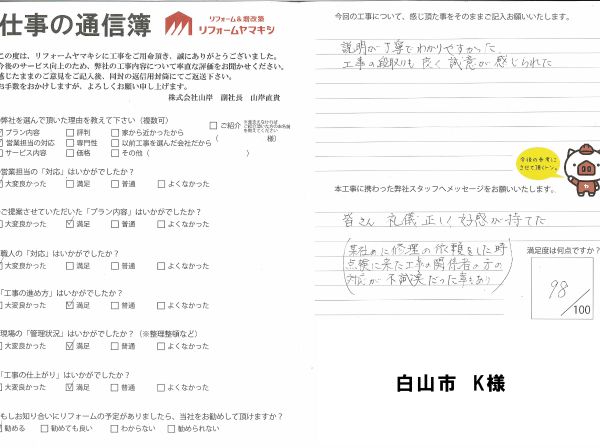 仕事の通信簿
リフォーム&増改築
リフォームヤマキシ
この度は、リフォームヤマキシに工事をご用命頂き、誠にありがとうございました。
今後のサービス向上のため、弊社の工事内容について率直な評価をお聞かせください。
感じたままのご意見をご記入後、同封の返信用封筒にてご返送下さい。
お手数をおかけしますが、よろしくお願い申し上げます。
株式会社山岸 副社長 山岸直貴
弊社を選んで頂いた理由を教えて下さい（複数可）
プラン内容 評判 家から近かったから ご紹介
営業担当の対応 専門性 以前工事を選んだ会社だから （ 様）
サービス内容 価格 その他（ ）
営業担当の「対応」はいかがでしたか？
大変良かった 満足 普通 よくなかった
ご提案させていただいた「プラン内容」はいかがでしたか？
大変良かった 満足 普通 よくなかった
職人の「対応」はいかがでしたか？
大変良かった 満足 普通 よくなかった
「工事の進め方」はいかがでしたか？
大変良かった 満足 普通 よくなかった
現場の「管理状況」はいかがでしたか？（※整理整頓など）
大変良かった 満足 普通 よくなかった
「工事の仕上がり」はいかがでしたか？
大変良かった 満足 普通 よくなかった
もしお知り合いにリフォームの予定がありましたら、当社をお勧めして頂けますか？
勧める 勧めても良い わからない 勧められない
今回の工事について、感じ頂た事をそのままご記入お願いいたします。
説明が丁寧でわかりやすかった
工事の段取りも良く誠意が感じられた
今後の参考に
させて頂くトン。
本工事に携わった弊社スタッフへメッセージをお願いいたします。
皆さん 礼儀正しく好感が持てた
（某社めに修理の依頼をした時
点検に来た工事の関係者の方の
対応が不誠実だった事もあり）
満足度は何点ですか？
98
/100
白山市 K様